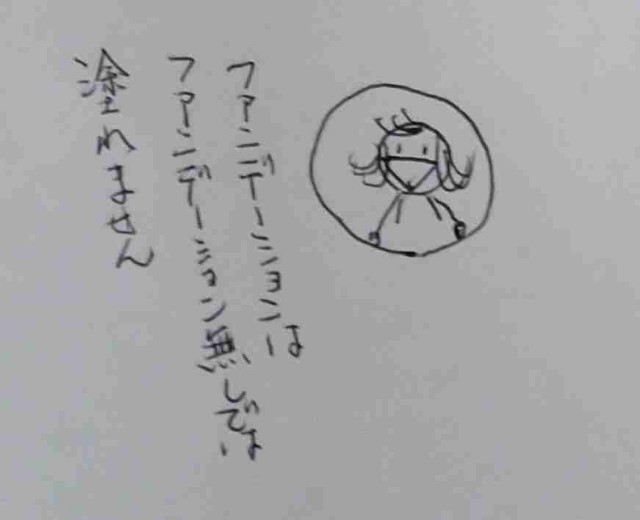 ファンデーションは
ファンデーション無しでは、
塗れません